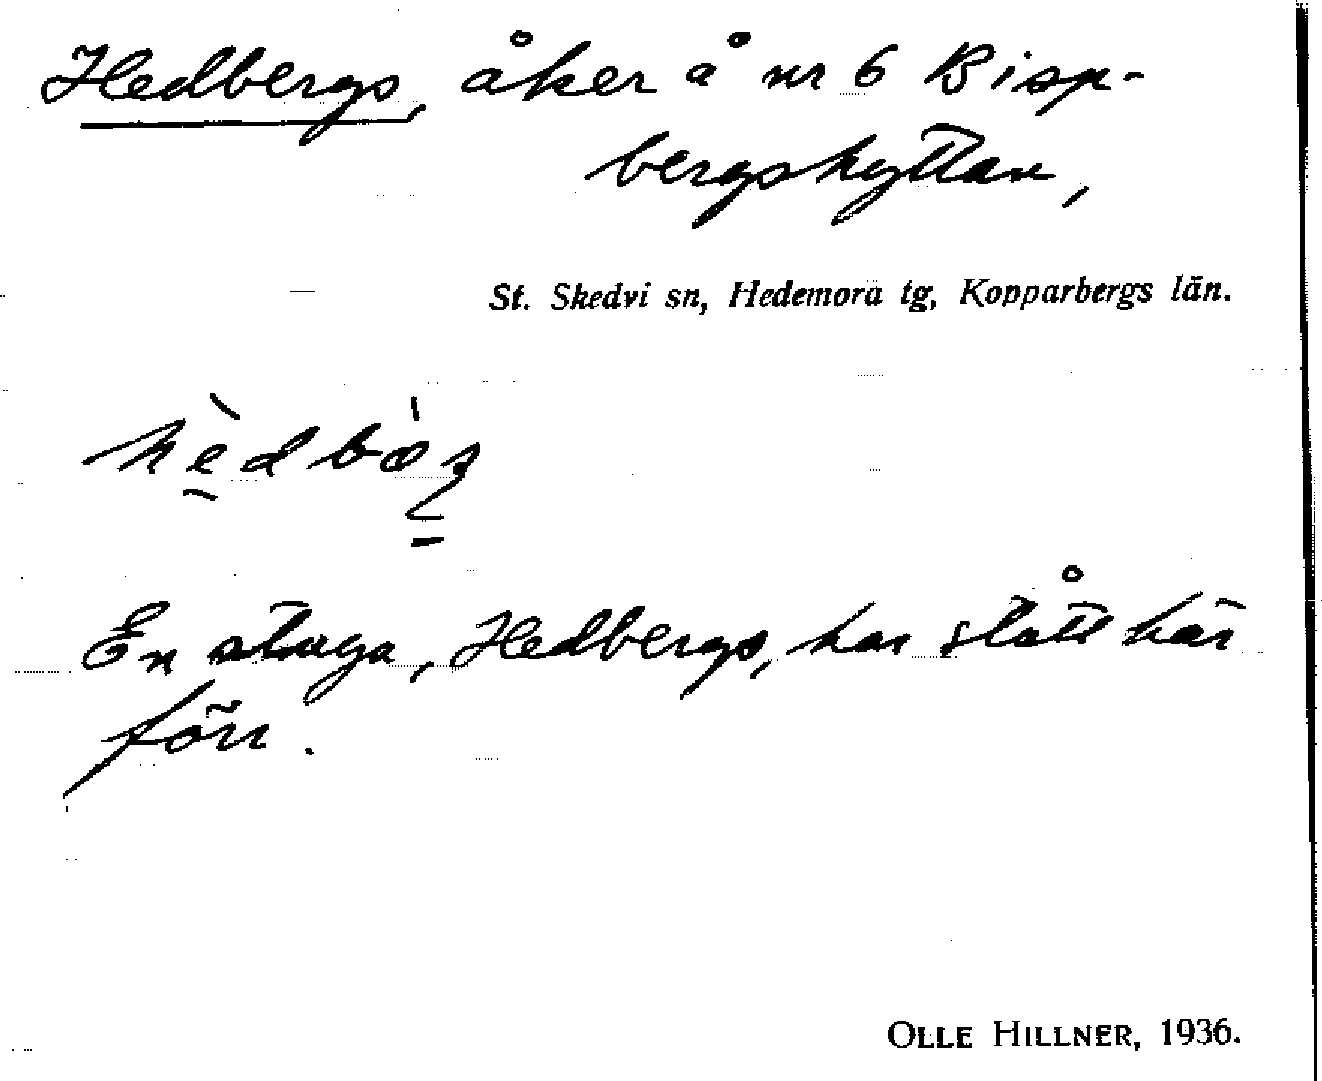 Hedbergs, åker å nr 6 Bisp-
bergshyttan,
St. Skedvi sn, Hedemora tg, Kopparbergs län.
En stuga, Hedbergs, har stått här
förr.
OLLE HILLNER, 1936.